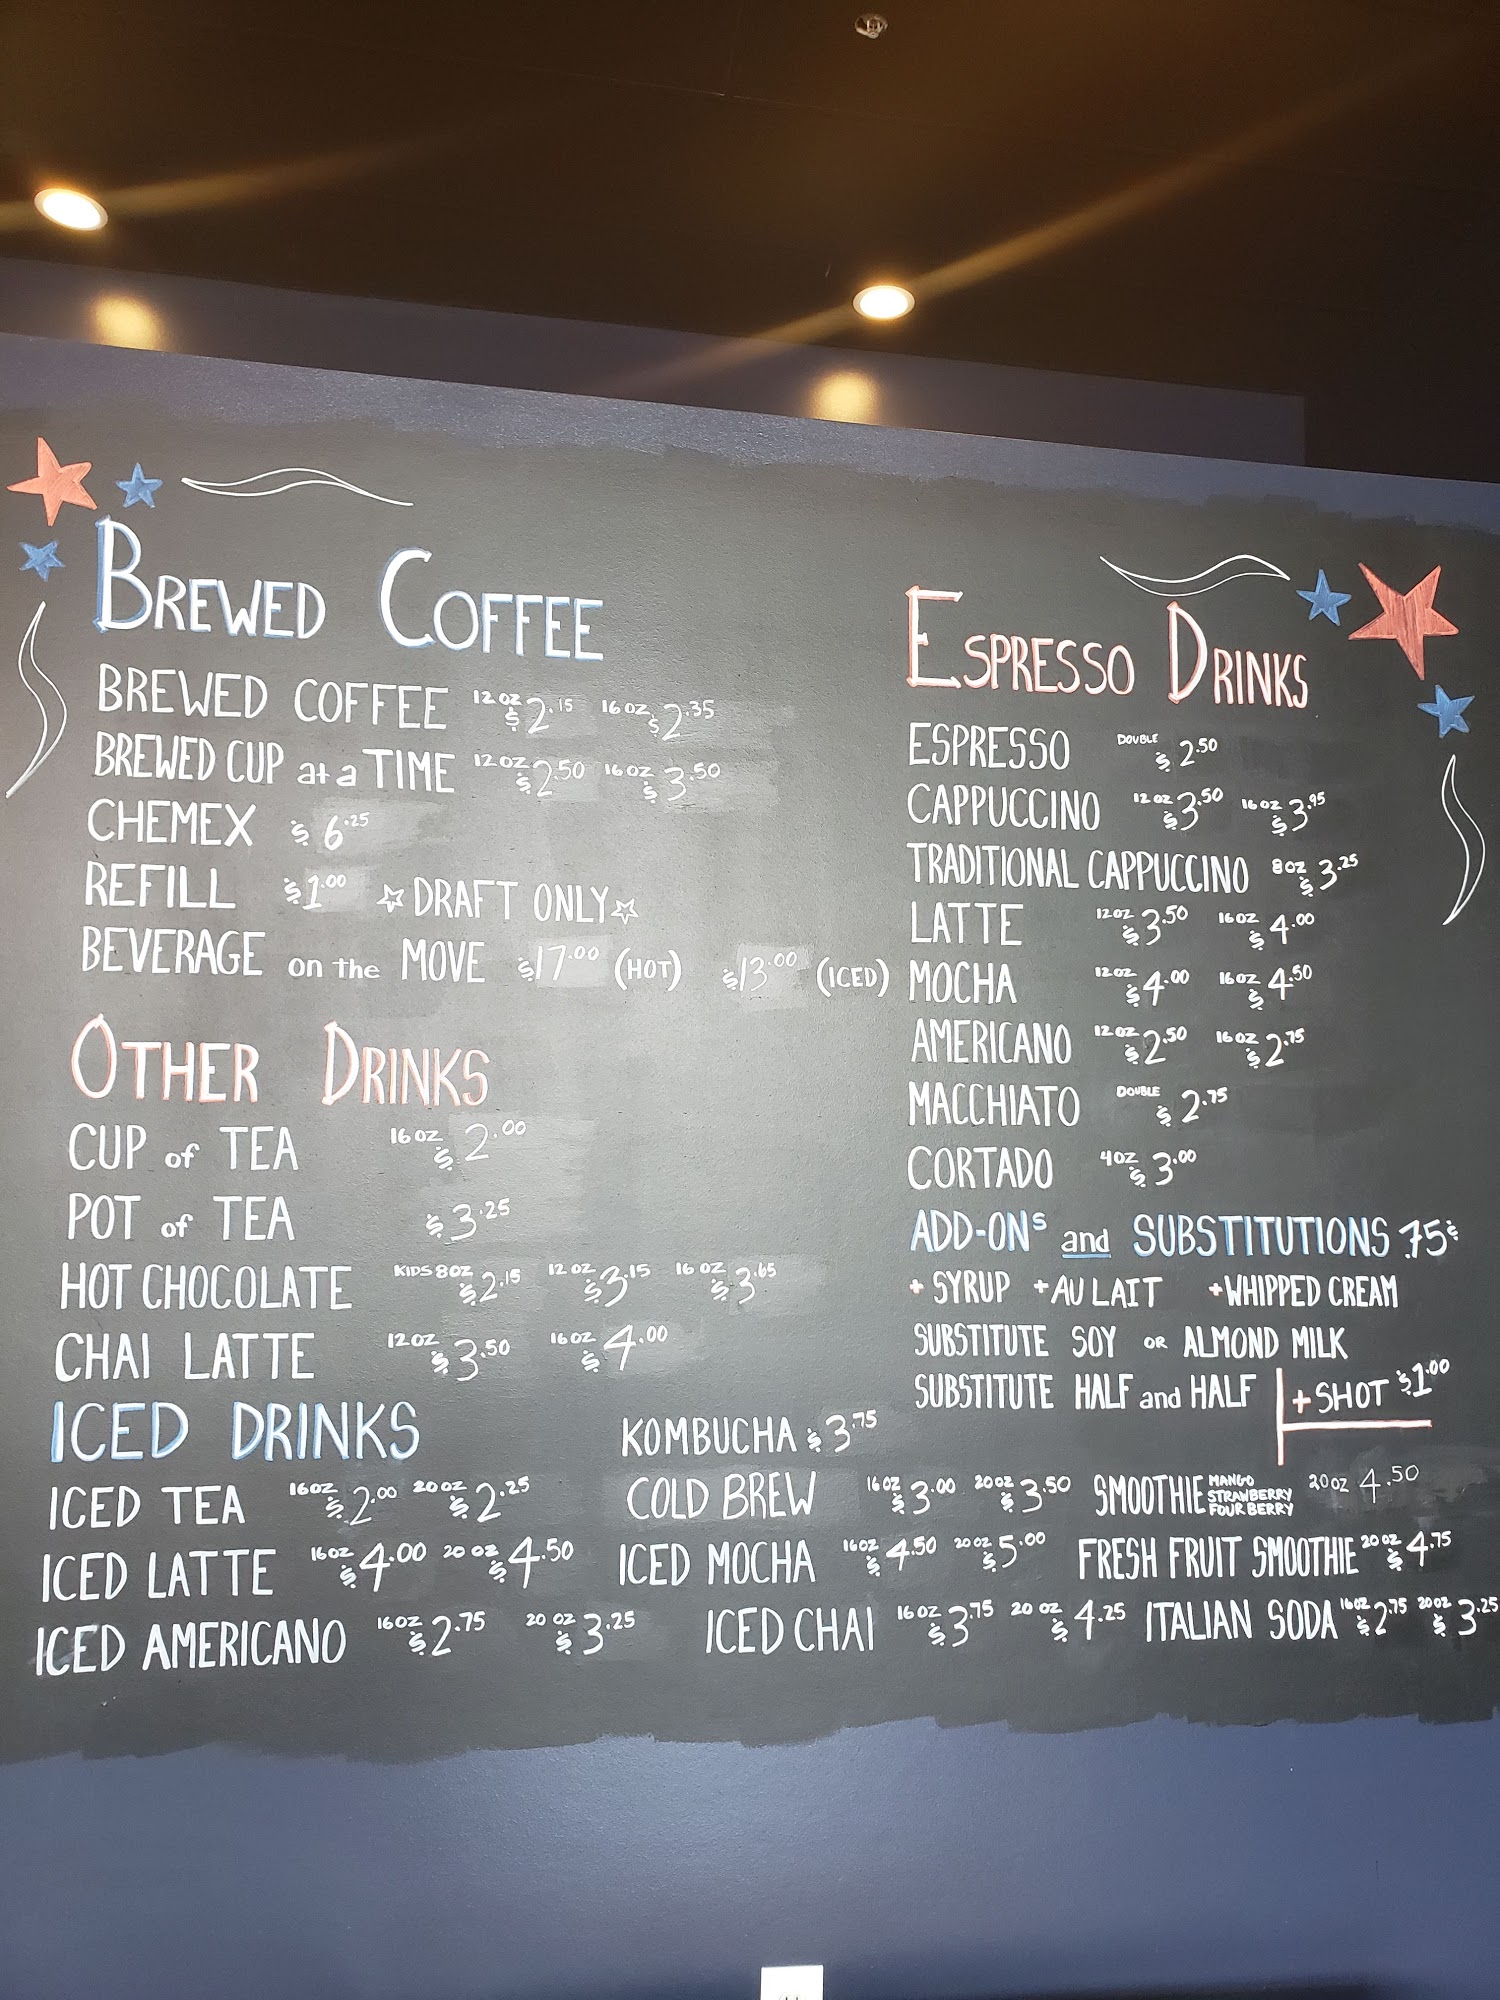 BREWED COFFEE
BREWED COFFEE 12 OZ $2.15 16 OZ $2.35
BREWED CUP at a TIME 12 OZ $2.50 16 OZ $3.50
CHEMEX $6.25
REFILL $1.00 ☆DRAFT ONLY☆
BEVERAGE on the MOVE $17.00 (HOT) $13.00 (ICED)
OTHER DRINKS
CUP of TEA 16 OZ $2.00
POT of TEA $3.25
HOT CHOCOLATE KIDS 8OZ $2.15 12 OZ $3.15 16 OZ $3.65
CHAI LATTE 12 OZ $3.50 16 OZ $4.00
ESPRESSO DRINKS
ESPRESSO DOUBLE $2.50
CAPPUCCINO 12 OZ $3.50 16 OZ $3.95
TRADITIONAL CAPPUCCINO 8OZ $3.25
LATTE 12 OZ $3.50 16 OZ $4.00
MOCHA 12 OZ $4.00 16 OZ $4.50
AMERICANO 12 OZ $2.50 16 OZ $2.75
MACCHIATO DOUBLE $2.75
CORTADO 4OZ $3.00
ADD-ONS and SUBSTITUTIONS .75¢
+ SYRUP + AU LAIT + WHIPPED CREAM
SUBSTITUTE SOY OR ALMOND MILK
SUBSTITUTE HALF and HALF
+ SHOT $1.00
ICED DRINKS
ICED TEA 16 OZ $2.00 20 OZ $2.25
ICED LATTE 16 OZ $4.00 20 OZ $4.50
ICED AMERICANO 16 OZ $2.75 20 OZ $3.25
KOMBUCHA $3.75
COLD BREW 16 OZ $3.00 20 OZ $3.50
ICED MOCHA 16 OZ $4.50 20 OZ $5.00
ICED CHAI 16 OZ $3.75 20 OZ $4.25
SMOOTHIE MANGO
STRAWBERRY
FOUR BERRY
20 OZ 4.50
FRESH FRUIT SMOOTHIE 20 OZ $4.75
ITALIAN SODA 16 OZ $2.75 20 OZ $3.25